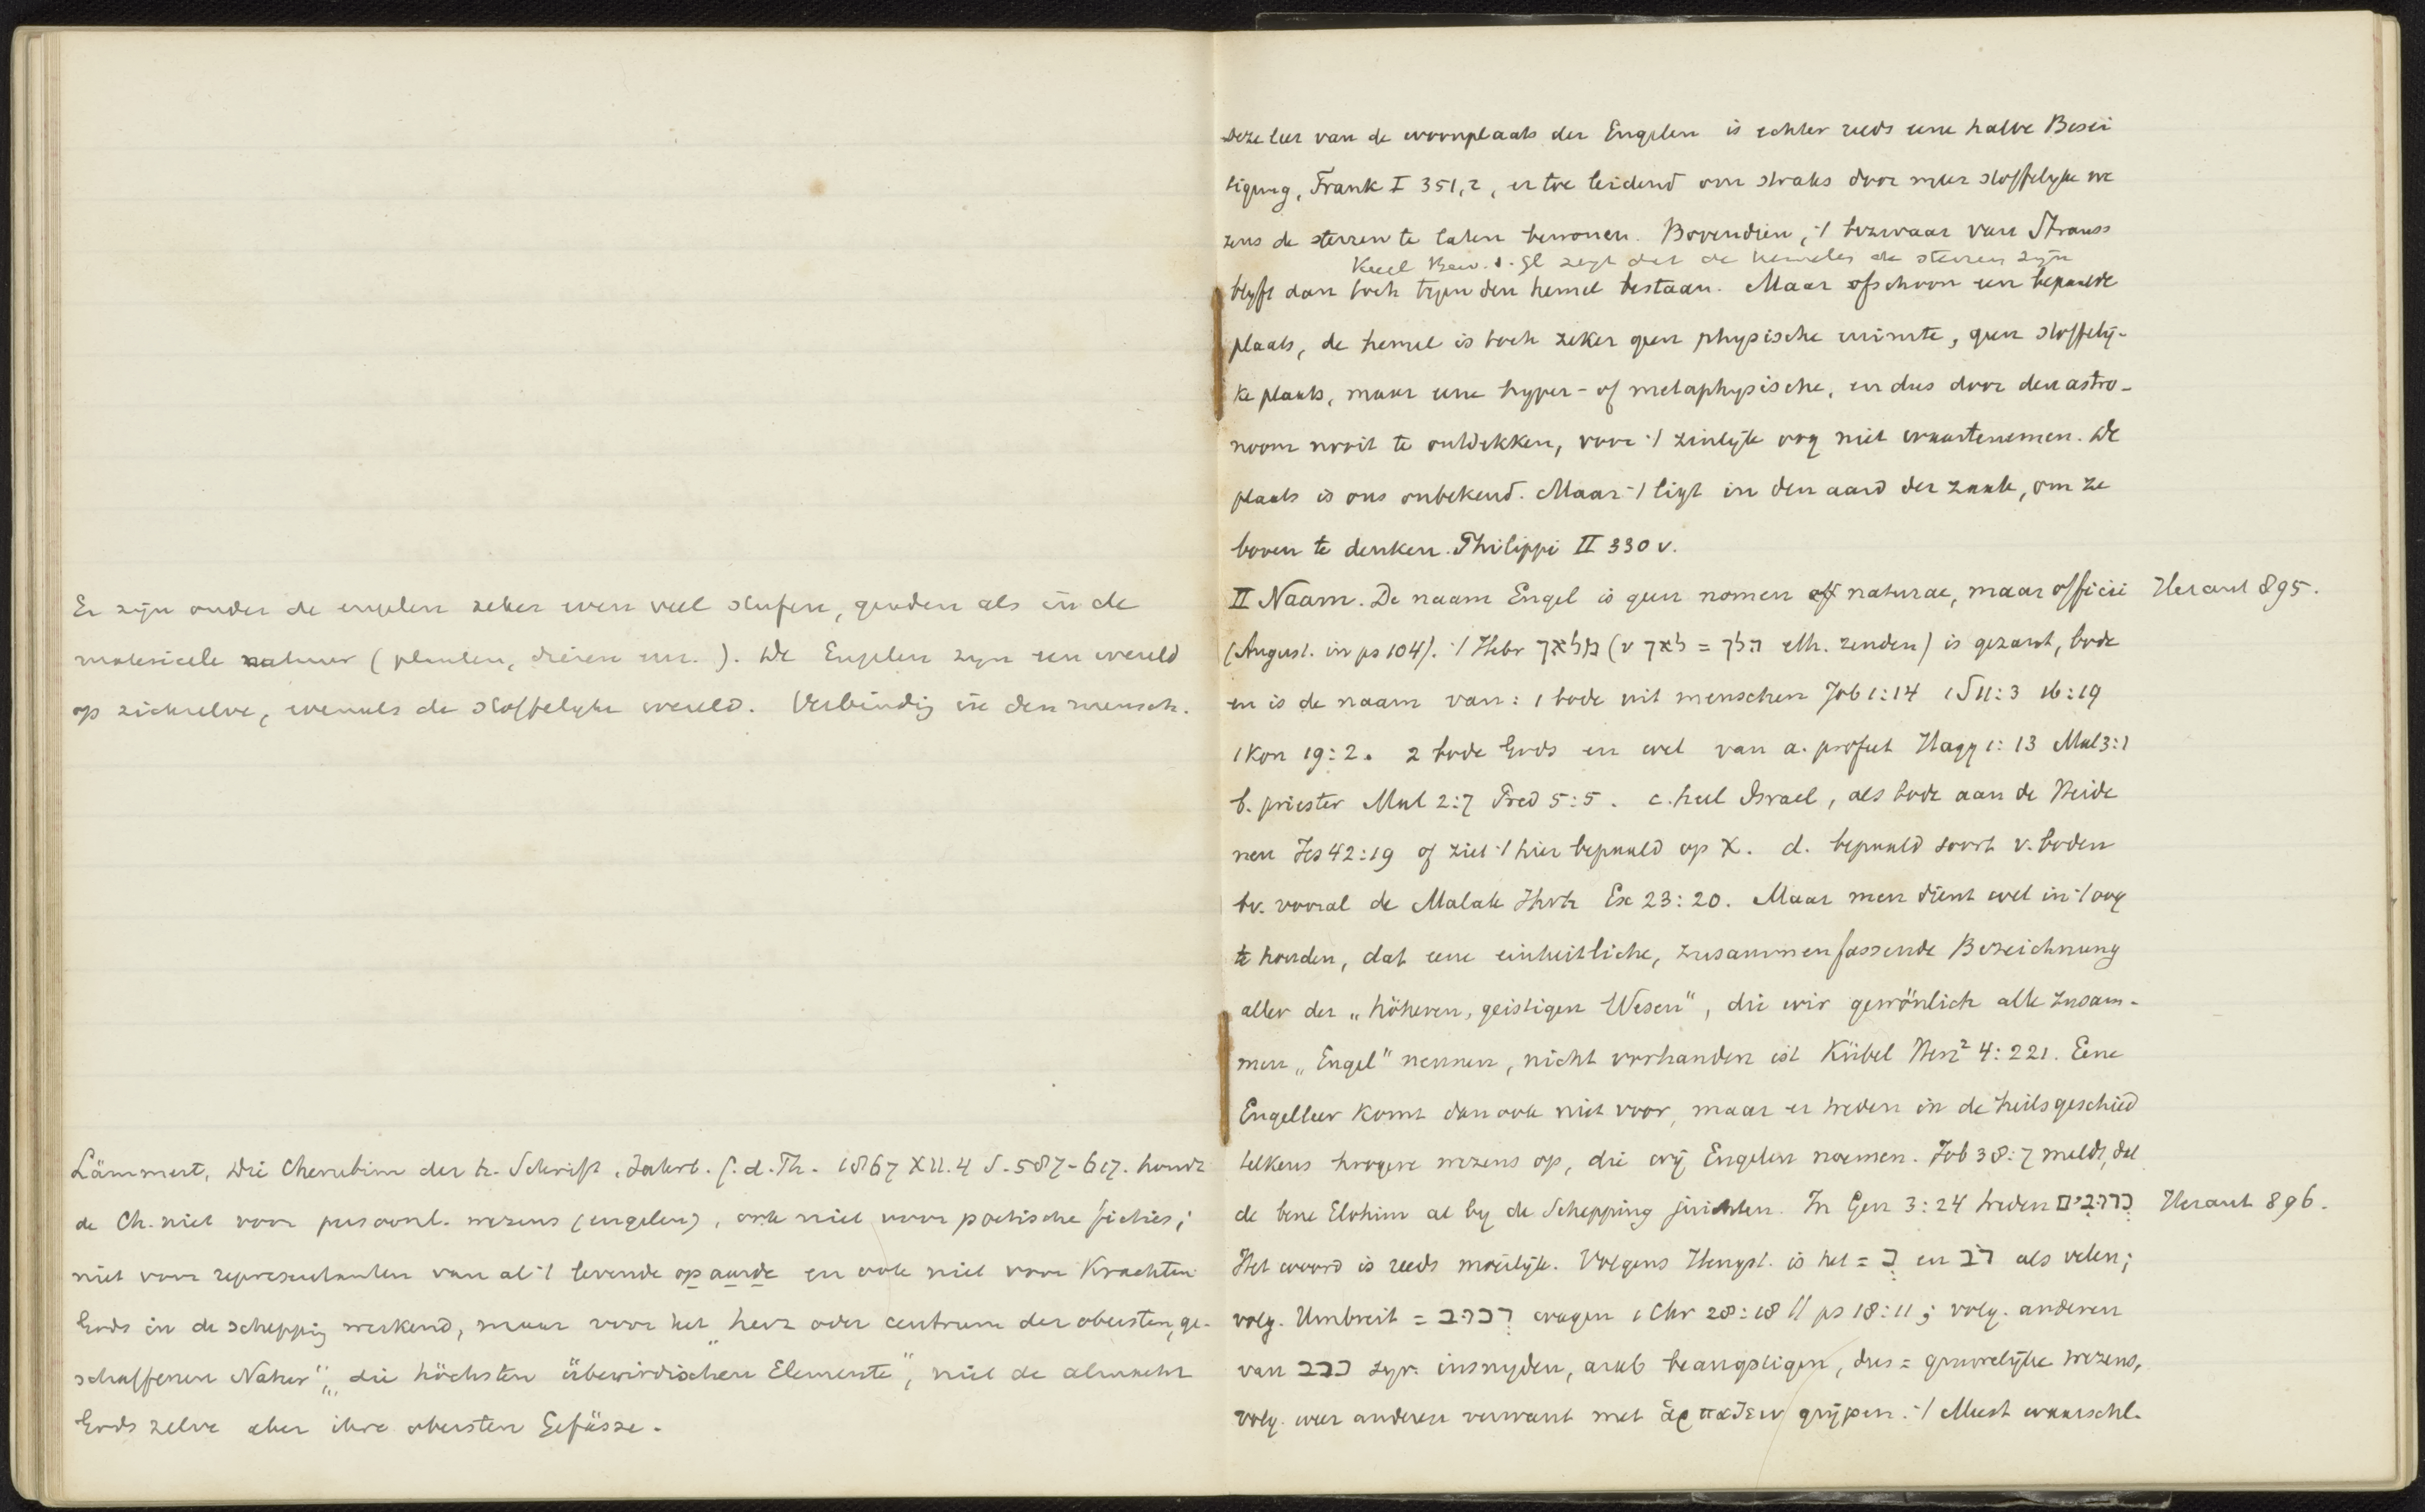 Er zijn onder de engelen zeker even veel stufen, graden als in de
materieele natuur (planten, dieren enz.). De Engelen zijn een wereld
op zichzelve, evenals de stoffelyke wereld. Verbinding in den mensch.
Lämmert, Die Cherubim der h. Schrift, Jahrb. f. d. Th. 1867 XII.4 S. 587-617. houdt
de Ch. niet voor persoonl. wezens (engelen), ook niet voor poëtische ficties;
niet voor representanten van al 't levende op aarde en ook niet voor Krachten
Gods in de schepping werkend, maar voor het "herz oder centrum der obersten, ge-
schaffenen Natur", "die höchsten überirdischen Elemente", niet de almacht
Gods zelve aber ihre obersten Gefässe.
Deze leer van de woonplaats der Engelen is echter reeds eene halve Besei
tigung, Frank I 351,2, er toe leidend om straks door meer stoffelyke we
zens de sterren te laten bewonen. Bovendien, 't bezwaar van Strauss
Keerl Bew. d. Gl zegt dat de hemelen de sterren zijn
blyft dan toch tegen den hemel bestaan. Maar ofschoon een bepaalde
plaats, de hemel is toch zeker geen physische ruimte, geen stoffelij-
ke plaats, maar eene hyper- of metaphysische, en dus door den astro-
noom nooit te ontdekken, voor 't zinlijk oog niet waartenemen. De
plaats is ons onbekend. Maar 't ligt in den aard der zaak, om ze
boven te denken. Philippi II 330 v.
II Naam. De naam Engel is geen nomen off naturae, maar officii Heraut 895.
(August. in ps 104). 't Hebr מלאך (v לאך = הלך eth. zenden) is gezant, bode
en is de naam van: 1 bode uit menschen Job 1:14 1 S 11:3 16:19
1 Kon 19:2. 2 bode Gods en wel van a. profeet Hagg 1:13 Mal 3:1
b. priester Mal 2:7 Pred 5:5. c. heel Israel, als bode aan de Heide
nen Jes 42:19 of ziet 't hier bepaald op X. d. bepaald soort v. boden
bv. vooral de Malak Jhvh Ex 23:20. Maar men dient wel in 't oog
te houden, dat eene einheitliche, zusammenfassende Bezeichnung
aller der „höheren, geistigen Wesen", die wir gewönlich alle zusam-
men „Engel" nennen, nicht vorhanden ist Kübel Herz² 4:221. Eene
Engelleer komt dan ook niet voor, maar er treden in de heilsgeschied
telkens hoogere wezens op, die wij Engelen noemen. Job 38:7 meldt, dat
de bene Elohim al by de Schepping juichten. In Gen 3:24 treden כרובים Heraut 896.
Het woord is reeds moeilijk. Volgens Hengst. is het = כ en רב als velen;
volg. Umbreit = רכוב wagen 1 Chr 28:18 // ps 18:11; volg. anderen
van כרב syr. insnyden, arab beangstigen, dus = gruwelijke wezens,
volg. weer anderen verwant met ἁρπαζειν grijpen. 't Meest waarschl.